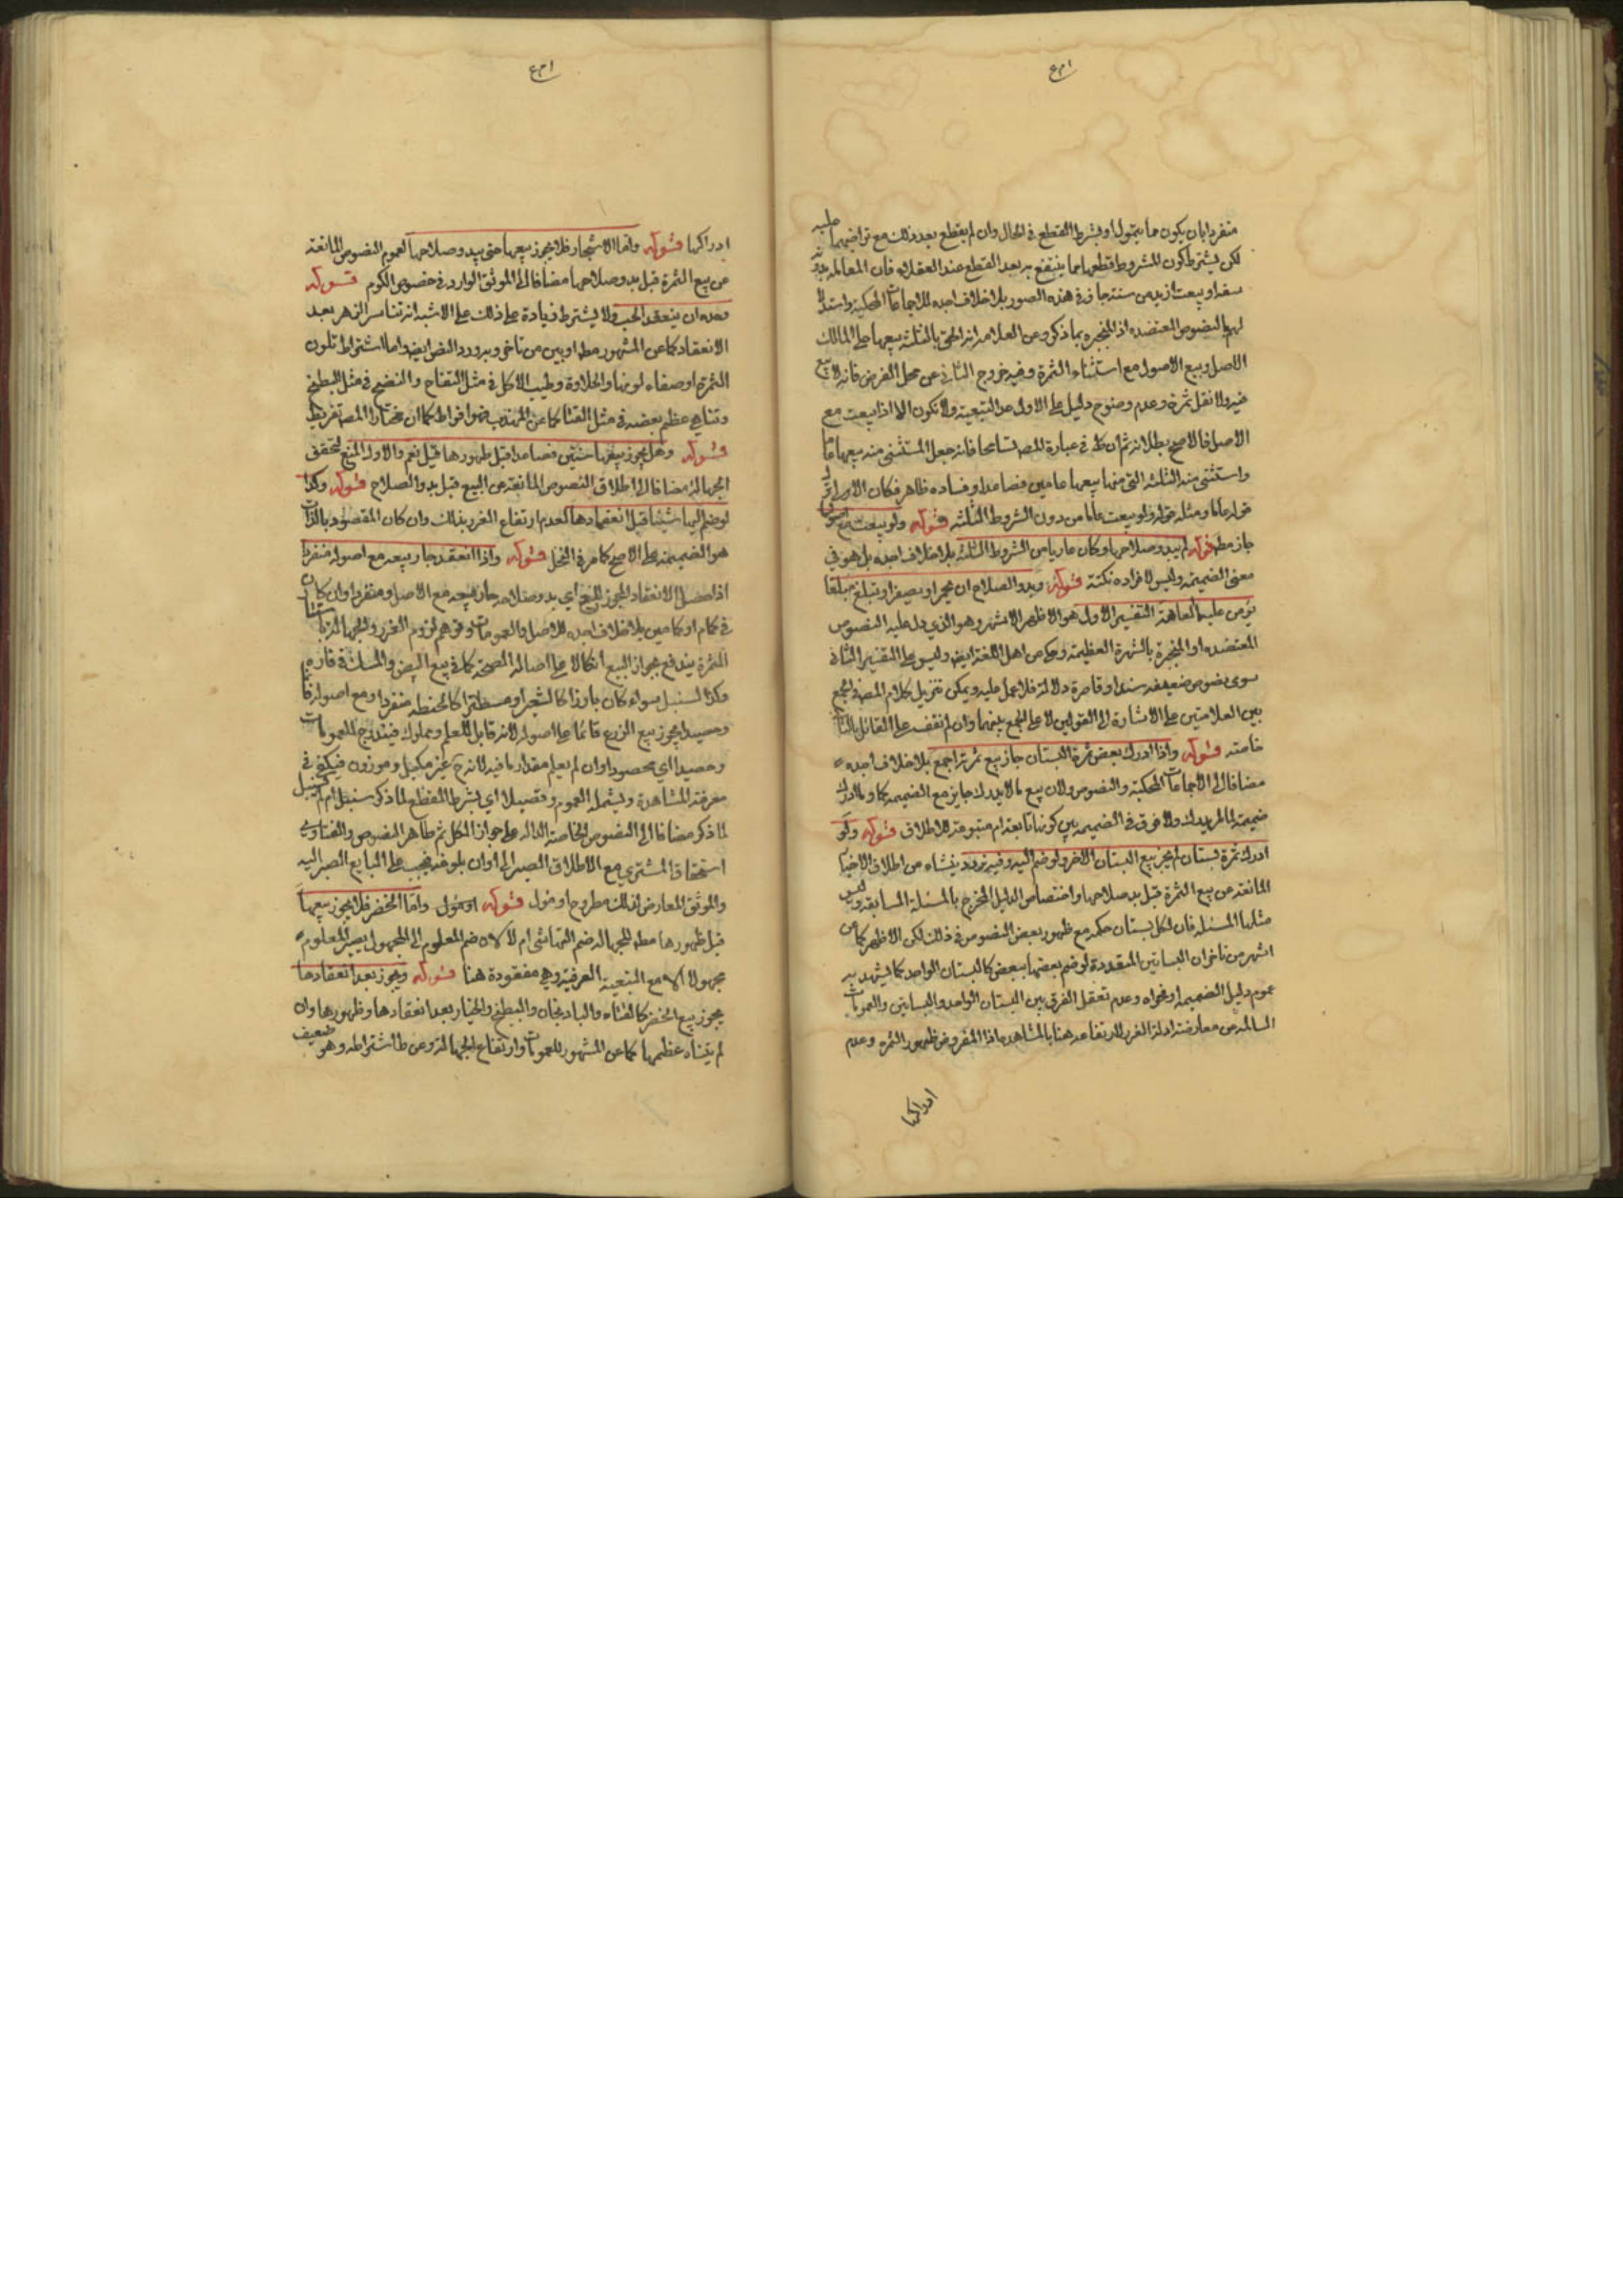 منفردا بان يكون مما يتمول او بشرط القطع في الحال وان لم يقطع بعد ذلك مع تراضيهما عليه
لكن يشترط كون المشروط قطعها مما ينتفع به بعد القطع عند العقلاء فان المعاملة بدونه
سفه او بيعت ازيد من سنة جاز في هذه الصور بلا خلاف اجده للاجماعات المحكية واستدلالا
لهم بالنصوص المعتضدة اذ المنجبرة بما ذكر وعن العلامة انه الحق بالثلثة بيعها على المالك
الاصل وبيع الاصول مع استثناء الثمرة وفيه خروج الثاني عن محل الفرض فانه لا بيع
فيه ولا نقل ثمرة وعدم وضوح دليل على الاول عدا التبعية ولا تكون الا اذا بيعت مع
الاصل فالاصح بطلانه ثم ان في عبارة المص تسامحا فانه جعل المستثنى منه بيعها عاما
واستثنى منه الثلثة التي منها بيعها عامين فصاعدا وفساده ظاهر فكان الاولى
قوله عاما ومثله قوله ولو بيعت عاما من دون الشروط الثلثة قوله ولو بيعت مع اصولها
جاز مطلقا قوله لم يبد وصلاحها وكان عاريا من الشروط الثلثة بلا خلاف اجده بل هو في
معنى الضميمة وليس لافراده نكتة قوله وبدو الصلاح ان يحمر او يصفر او تبلغ مبلغا
يؤمن عليها العاهة التفسير الاول هو الاظهر الاشهر وهو الذي دل عليه النصوص
المعتضدة او المنجبرة بالشهرة العظيمة وحكي عن اهل اللغة ايضا وليس على التفسير الثاني
سوى نصوص ضعيفة سندا وقاصرة دلالة فلا عمل عليه ويمكن تنزيل كلام المصنف والجمع
بين العلامتين على الاشارة الى القولين لا على الجمع بينهما وان لم نقف على القائل بالثاني
خاصة قوله واذا ادرك بعض ثمرة البستان جاز بيع ثمرته اجمع بلا خلاف اجده
مضافا الى الاجماعات المحكية والنصوص ولان بيع ما لا يدرك جايز مع الضميمة كما وما ادرك
ضميمة لما لم يدرك ولا فرق في الضميمة بين كونها تابعة ام متبوعة للاطلاق قوله ولو
ادرك ثمرة بستان لم يجز بيع البستان الاخر ولو ضم اليه وفيه تردد ينشاء من اطلاق الاخبار
المانعة عن بيع الثمرة قبل بدو صلاحها واختصاص الدليل المخرج بالمسئلة السابقة وليس
مثلها المسئلة فان لكل بستان حكمه مع ظهور بعض النصوص في ذلك لكن الاظهر كما عن
اشهر من تاخر ان البساتين المتعددة لو ضم بعضها ببعض كالبستان الواحد كما يشهد به
عموم دليل الضميمة او فحواه وعدم تعقل الفرق بين البستان الواحد والبساتين والعمومات
السالمة عن معارضة ادلة الغرر لارتفاعه هنا بالمشاهدة اذا المفروض ظهور الثمرة وعدم
ادراكها
ادراكها قوله واما الاشجار فلا يجوز بيعها حتى يبدو صلاحها لعموم النصوص المانعة
عن بيع الثمرة قبل بدو صلاحها مضافا الى الموثق الوارد في خصوص الكرم قوله
وحده ان ينعقد الحب ولا يشترط زيادة على ذلك على الاشبه انه تناثر الزهر بعد
الانعقاد كما عن المشهور مطلقا او بين من تاخر وبه ورد النص ايضا واما اشتراط تلون
الثمرة او صفاء لونها والحلاوة وطيب الاكل في مثل التفاح والنضج في مثل البطيخ
وتناهي عظم بعضه في مثل القثا كما عن المهذب فهو افراط كما ان مختار المص تفريط
قوله وهل يجوز بيعها سنتين فصاعدا قبل ظهورها قيل نعم والاولى المنع لتحقق
الجهالة مضافا الى اطلاق النصوص المانعة عن البيع قبل بدو الصلاح قوله وكذا
لو ضم اليها شيئا قبل انعقادها لعدم ارتفاع الغرر بذلك وان كان المقصود بالذات
هو الضميمة على الاصح كما مر في النخل قوله واذا انعقد جاز بيعه مع اصوله منفردا
اذا حصل الانعقاد المجوز للبيع اي بدو صلاحه جاز بيعه مع الاصل ومنفردا وان كان
في كمام او كمامين بلا خلاف اجده للاصل والعمومات وتوهم لزوم الغرر والجهالة باستتار
الثمرة يندفع بجواز البيع اتكالا على اصالة الصحة كما في بيع البيض والمسك في فاره
وكذا السنبل سواء كان بارزا كالشعير او مستترا كالحنطة منفردا ومع اصوله قائما
وحصيدا يجوز بيع الزرع قائما على اصوله لانه قابل للعلم ومملوك فيندرج للعمومات
وحصيدا اي محصودا وان لم يعلم مقدار ما فيه لانه غير مكيل وموزون فيكفي في
معرفة المشاهدة ويشمله العموم وقصيلا اي بشرط القطع لما ذكر سنبل ام لم يسنبل
لما ذكر مضافا الى النصوص الخاصة الدالة على جواز الكل ثم ظاهر النصوص والفتاوى
استحقاق المشتري مع الاطلاق الصبر الى اوان بلوغه فيجب على البايع الصبر اليه
والموثق المعارض لذلك مطروح او مؤول قوله واما الخضر فلا يجوز بيعها
قبل ظهورها مطلقا للجهالة ضم اليها شئ ام لا لان ضم المعلوم الى المجهول يصير المعلوم
مجهولا الا مع التبعية العرفية وهي مفقودة هنا قوله ويجوز بعد انعقادها
يجوز بيع الخضر كالقثاء والبادنجان والبطيخ والخيار بعد انعقادها وظهورها وان
لم يتناه عظمها كما عن المشهور للعمومات وارتفاع الجهالة وعن ط اشتراطه وهو ضعيف